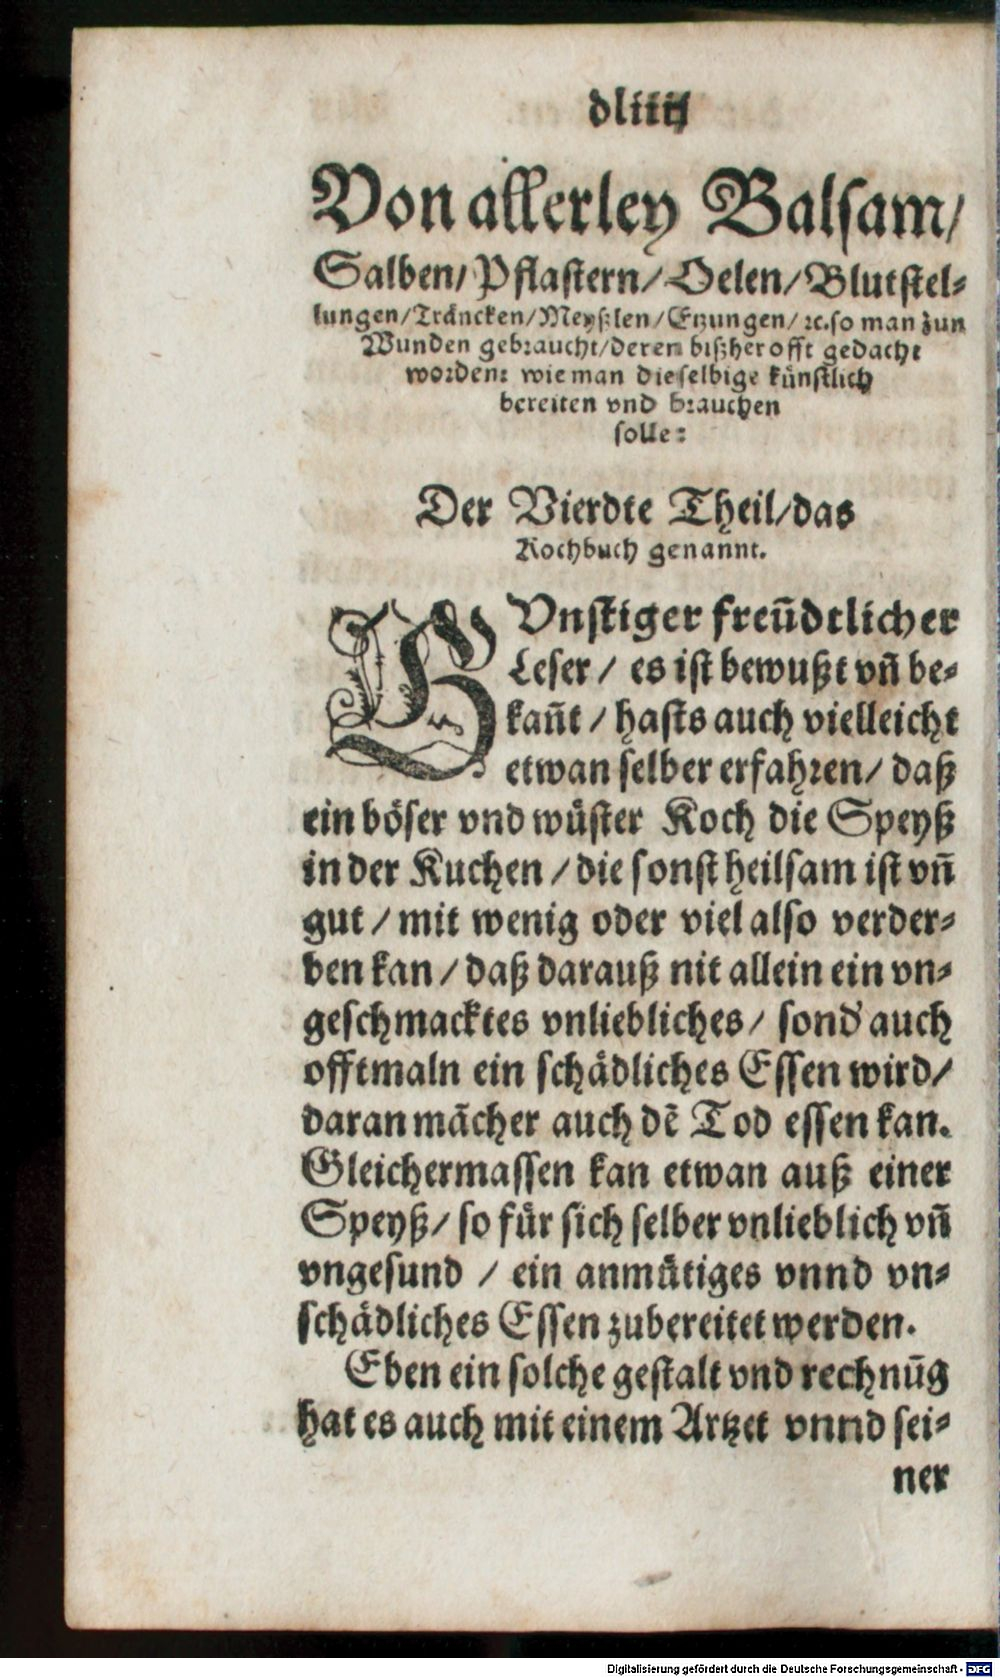 dliiij
Von allerley Balsam/
Salben/Pflastern/Oelen/Blutstel-
lungen/Träncken/Meyßlen/Etzungen/ꝛc.so man zun
Wunden gebraucht/deren bißher offt gedacht
worden: wie man dieselbige künstlich
bereiten vnd brauchen
solle:
Der Vierdte Theil/das
Kochbuch genannt.
GVnstiger freũdtlicher
Leser / es ist bewußt vñ be-
kañt / hasts auch vielleicht
etwan selber erfahren/ daß
ein böser vnd wüster Koch die Speyß
in der Kuchen / die sonst heilsam ist vñ
gut / mit wenig oder viel also verder-
ben kan / daß darauß nit allein ein vn-
geschmacktes vnliebliches/ sond' auch
offtmaln ein schädliches Essen wird/
daran mãcher auch dẽ Tod essen kan.
Gleichermassen kan etwan auß einer
Speyß/ so für sich selber vnlieblich vñ
vngesund / ein anmütiges vnnd vn-
schädliches Essen zubereitet werden.
Eben ein solche gestalt vnd rechnũg
hat es auch mit einem Artzet vnnd sei-
ner
Digitalisierung gefördert durch die Deutsche Forschungsgemeinschaft - DFG